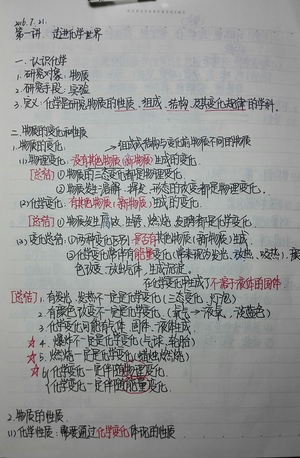 2016.7.21.
第一讲 走进化学世界
一.认识化学
1.研究对象:物质
2.研究手段:实验
3.定义:化学是研究物质的性质、组成、结构、及其变化规律的学科。
二.物质的变化和性质
1.物质的变化: 组成或结构与变化前物质不同的物质
(1)物理变化:没有其他物质(新物质)生成的变化。
[总结]①物质的三态变化都是物理变化。
②物质发生溶解、挥发、形态的改变都是物理变化。
(2)化学变化:有其他物质(新物质)生成的变化。
[总结]①物质发生腐蚀、生锈、燃烧、发酵都是化学变化。
(3)变化总结:①两种变化区别:是否有其他物质(新物质)生成
②化学变化常伴有能量变化(常表现为发光、放热、吸热),颜
色改变、放出气体、生成沉淀。
在化学变化中生成了不溶于液体的固体
[总结]1.有发光、发热不一定是化学变化(三态变化、灯泡)
2.有颜色改变不一定是化学变化。(氧气→液氧,淡蓝色)
3.化学变化可能有气体、固体、液体生成。
☆4.爆炸不一定是化学变化(气球、轮胎)
☆5.燃烧一定是化学变化(蜡烛燃烧)
☆6.化学变化一定伴随物理变化。
化学变化一定伴随能量变化。
2.物质的性质
(1)化学性质:需要通过化学变化体现的性质